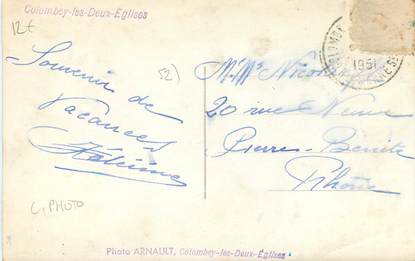 Colombey-les-Deux-Églises
12€
52)
Souvenir de
Vacances
C. PHOTO
1951
Mr Mme
20 rue
Pierre-Bénite
Rhône
Photo ARNAULT, Colombey-les-Deux-Églises